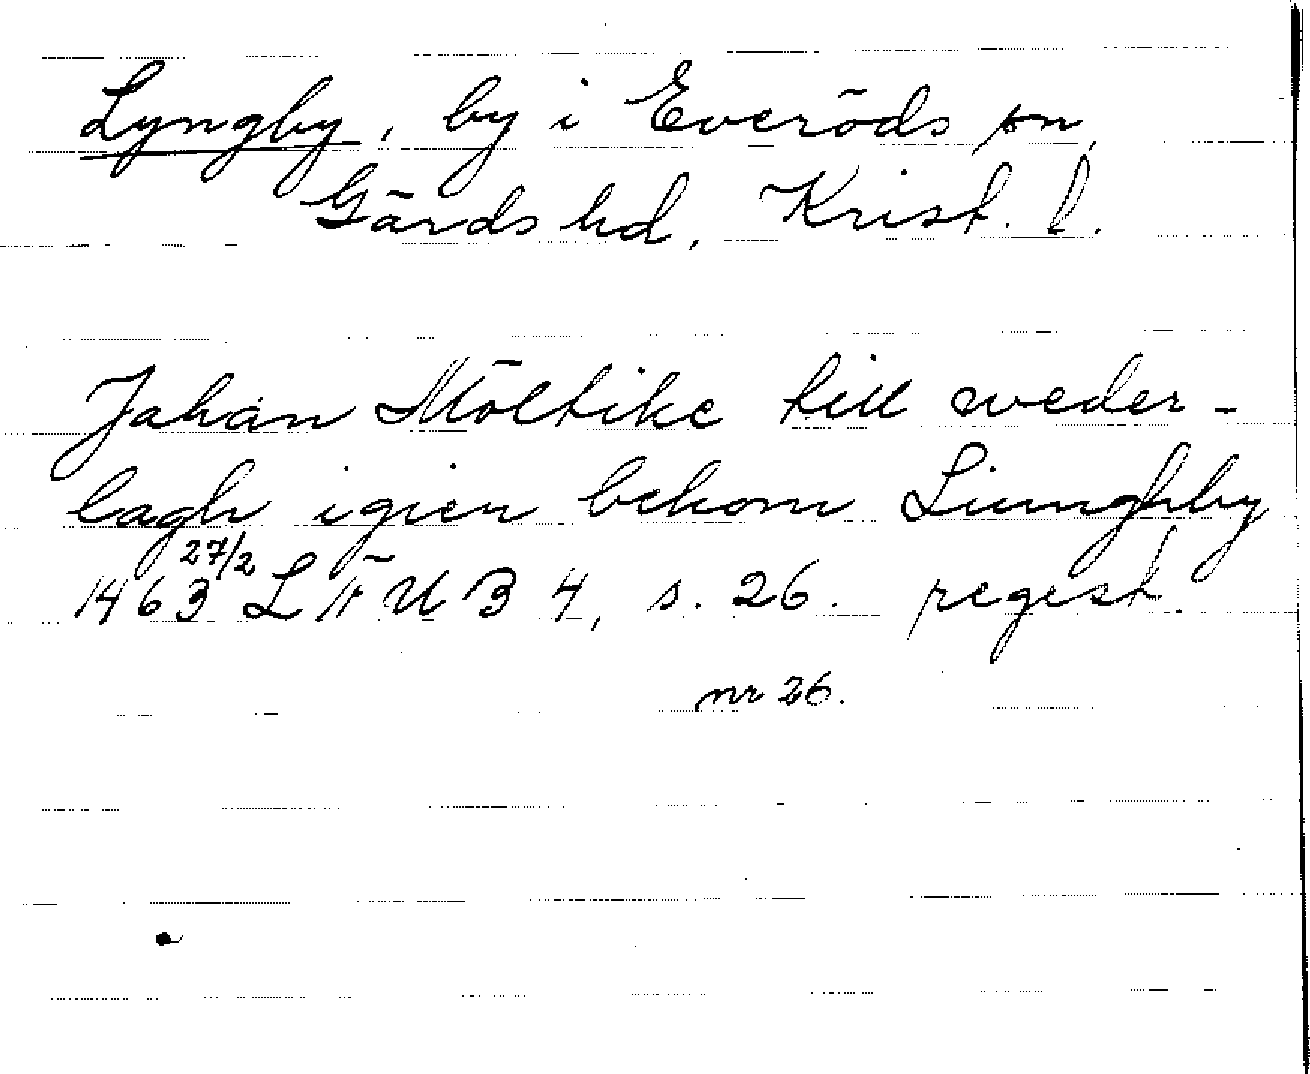 Lyngby, by i Everöds sn,
Gärds hd, Krist. l.
Johan Möltike till weder-
lagh igien bekom Liunghby
1463 27/2 LÄUB 4, s. 26. regest.
nr 26.